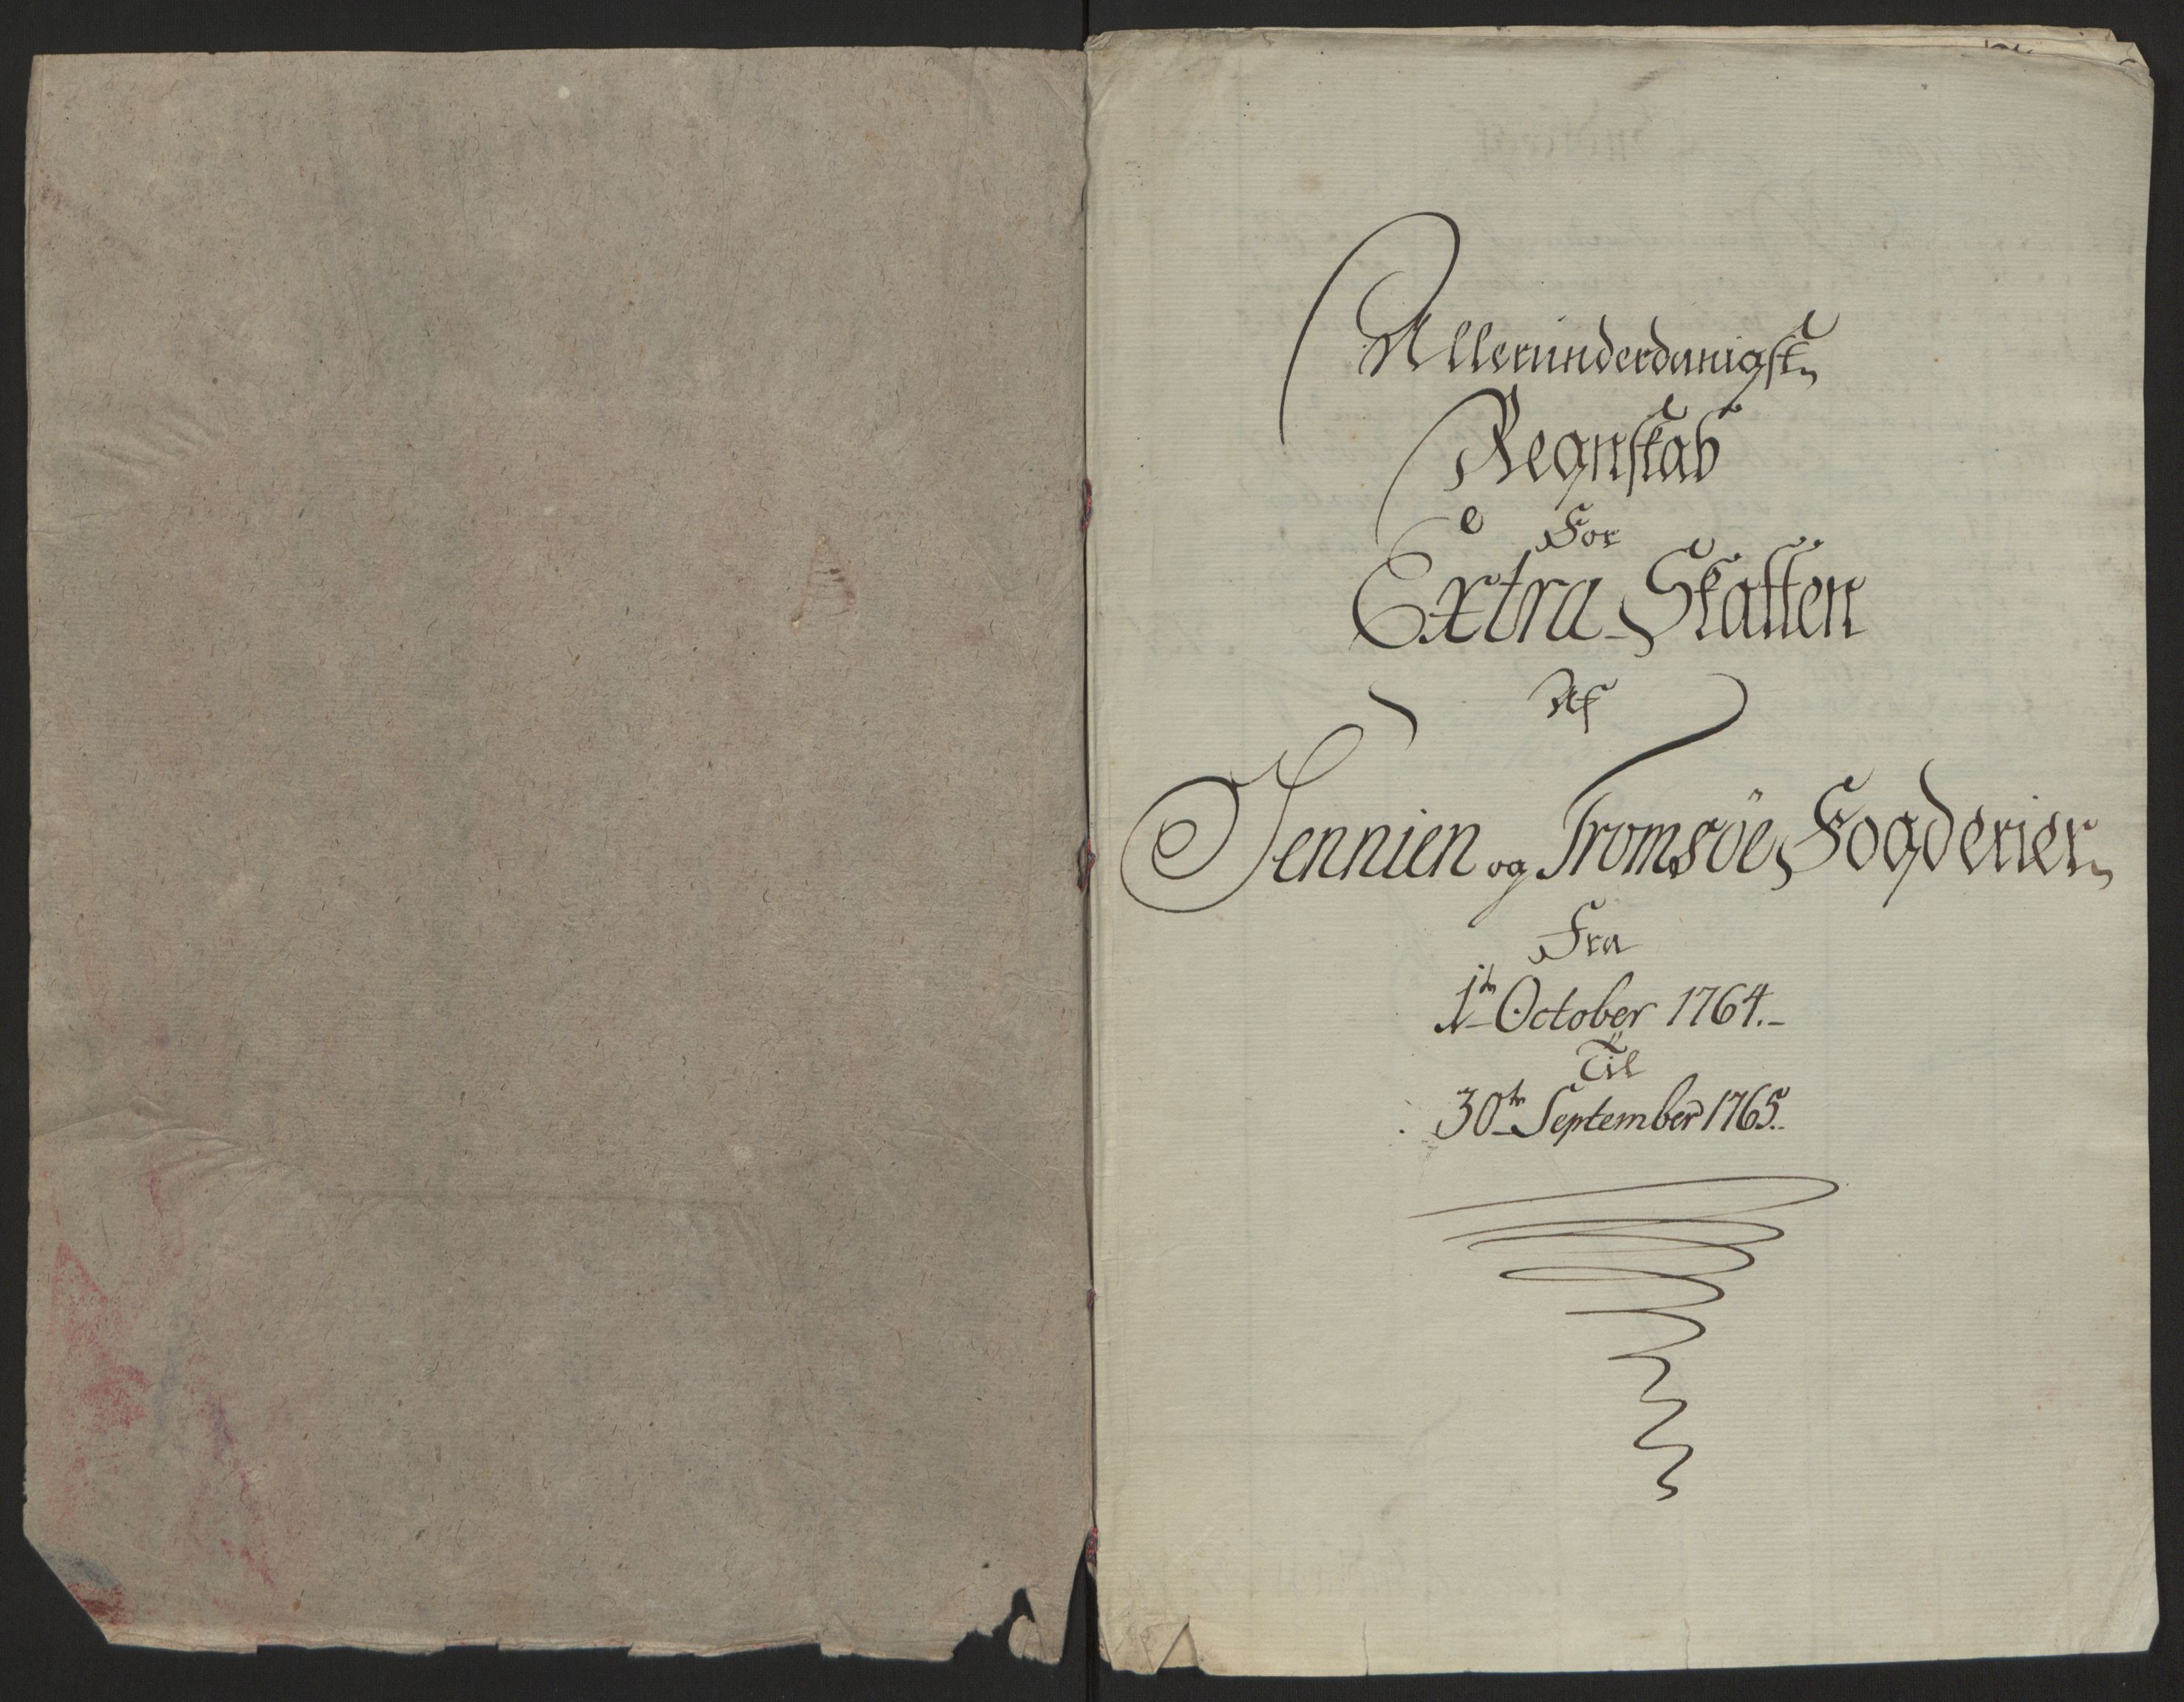 Allerunderdanigst
Regnskab
For
Extra-Skatten
Af
Sennien og Tromsöe Fogderier
Fra
1te October 1764.
Til
30te September 1765.